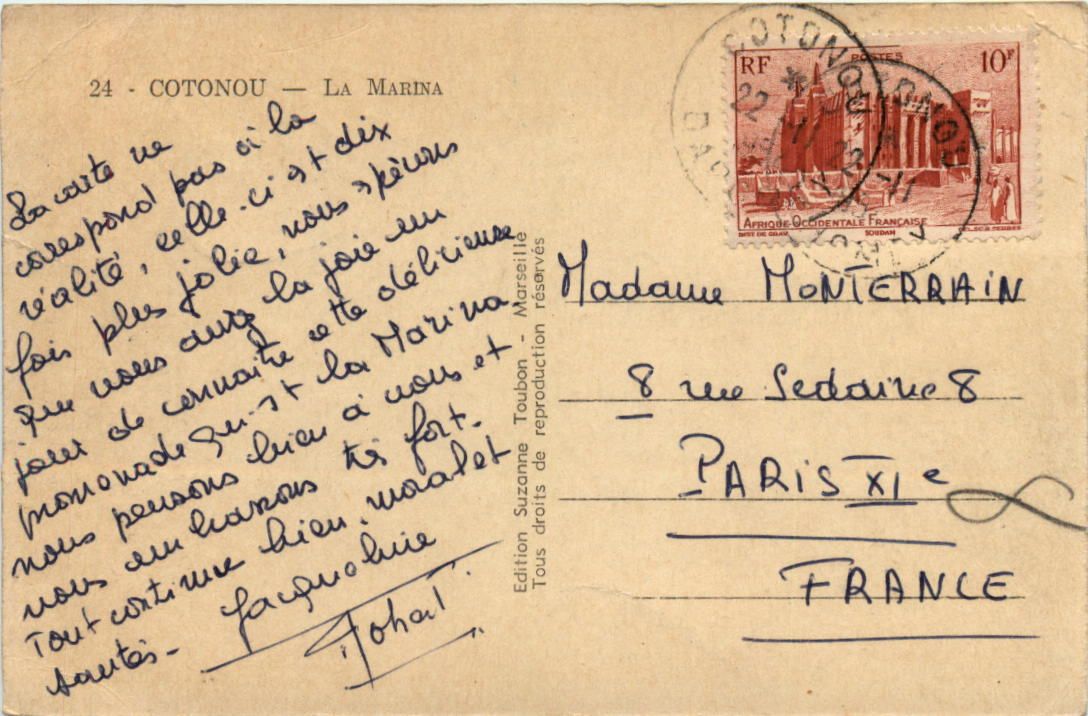 24 - COTONOU — LA MARINA
La carte ne
correspond pas à la
réalité, celle-ci est dix
fois plus jolie, nous espérons
que vous aurez la joie un
jour de connaître cette délicieuse
promenade qu'est la Marina.
nous pensons bien à vous et
vous embrassons très fort.
Tout continue bien. moral et
santés -
Jacqueline
Edition Suzanne Toubon - Marseille
Tous droits de reproduction réservés
COTONOU
22
COTONOU
22-11
RF
POSTES
10F
AFRIQUE OCCIDENTALE FRANÇAISE
SOUDAN
Madame MONTERRAIN
8 rue Sedaine 8
PARIS XIe
FRANCE